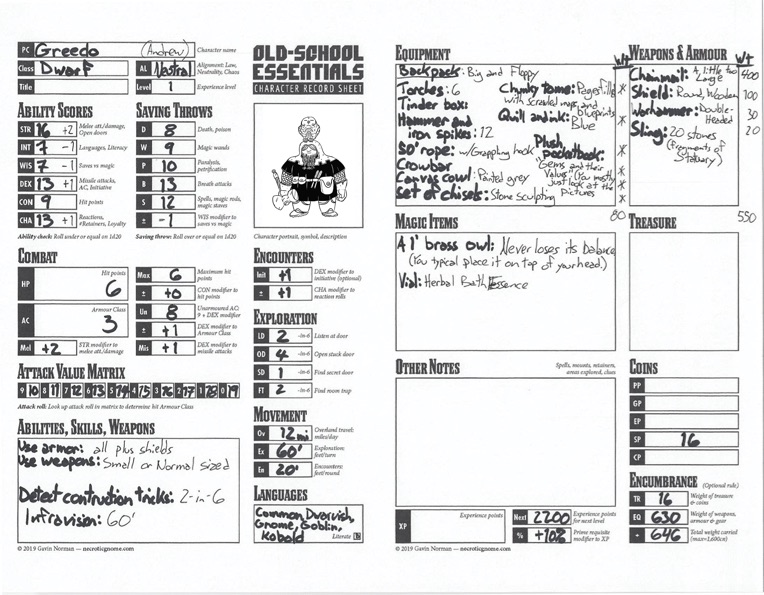 PC Greedo (Andrew) Character name
Class Dwarf AL Neutral Alignment: Law, Neutrality, Chaos
Title Level 1 Experience level
OLD-SCHOOL
ESSENTIALS
CHARACTER RECORD SHEET
ABILITY SCORES
STR 16 +2 Melee att./damage, Open doors
INT 7 -1 Languages, Literacy
WIS 7 -1 Saves vs magic
DEX 13 +1 Missile attacks, AC, Initiative
CON 9 Hit points
CHA 13 +1 Reactions, #Retainers, Loyalty
Ability check: Roll under or equal on 1d20
SAVING THROWS
D 8 Death, poison
W 9 Magic wands
P 10 Paralysis, petrification
B 13 Breath attacks
S 12 Spells, magic rods, magic staves
± -1 WIS modifier to saves vs magic
Saving throw: Roll over or equal on 1d20
Character portrait, symbol, description
COMBAT
HP 6 Hit points
AC 3 Armour Class
Mel +2 STR modifier to melee att./damage
Max 6 Maximum hit points
± +0 CON modifier to hit points
Un 8 Unarmoured AC: 9 + DEX modifier
± +1 DEX modifier to Armour Class
Mis +1 DEX modifier to missile attacks
ATTACK VALUE MATRIX
9 10 8 11 7 12 6 13 5 14 4 15 3 16 2 17 1 18 0 19
Attack roll: Look up attack roll in matrix to determine hit Armour Class
ABILITIES, SKILLS, WEAPONS
Use armor: all plus shields
Use weapons: Small or Normal sized
Detect contruction tricks: 2-in-6
Infravision: 60'
ENCOUNTERS
Init +1 DEX modifier to initiative (optional)
± +1 CHA modifier to reaction rolls
EXPLORATION
LD 2 -in-6 Listen at door
OD 4 -in-6 Open stuck door
SD 1 -in-6 Find secret door
FT 2 -in-6 Find room trap
MOVEMENT
Ov 12 mi Overland travel: miles/day
Ex 60' Exploration: feet/turn
En 20' Encounters: feet/round
LANGUAGES
Common, Dwarvish,
Gnome, Goblin,
Kobold
Literate
© 2019 Gavin Norman — necroticgnome.com
EQUIPMENT Wt
Backpack: Big and Floppy
Torches: 6
Tinder box:
Hammer and
iron spikes: 12
50' rope: w/Grappling hook
Crowbar
Canvas cowl: Painted grey
Set of chisels: Stone Sculpting
Chunky tome: Pages filled
with scrawled maps and
blueprints
Quill and ink: Blue
Plush
Pocketbook:
"Gems and their
Values" (You mostly
just look at the
Pictures
80
WEAPONS & ARMOUR Wt
Chainmail: A little too Large 400
Shield: Round, Wooden 100
Warhammer: Double-Headed 30
Sling: 20 stones 20
(fragments of
Statuary)
550
MAGIC ITEMS
A 1' brass owl: Never loses its balance
(You typical place it on top of your head.)
Vial: Herbal Bath Essence
TREASURE
OTHER NOTES
Spells, mounts, retainers, areas explored, clues
COINS
PP
GP
EP
SP 16
CP
ENCUMBRANCE (Optional rule)
TR 16 Weight of treasure & coins
EQ 630 Weight of weapons, armour & gear
= 646 Total weight carried (max=1,600cn)
XP Experience points
Next 2200 Experience points for next level
% +10% Prime requisite modifier to XP
© 2019 Gavin Norman — necroticgnome.com